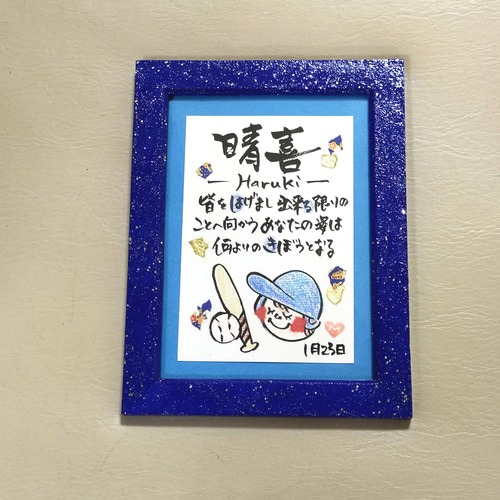 晴喜
— Haruki —
皆をはげまし 出来る限りの
ことへ向かう あなたの姿は
何よりの きぼうとなる
1月23日